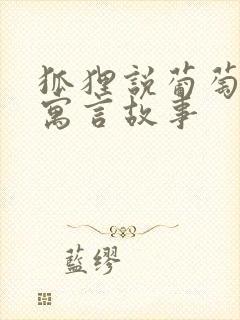 狐狸説葡萄
寓言故事
藍缪